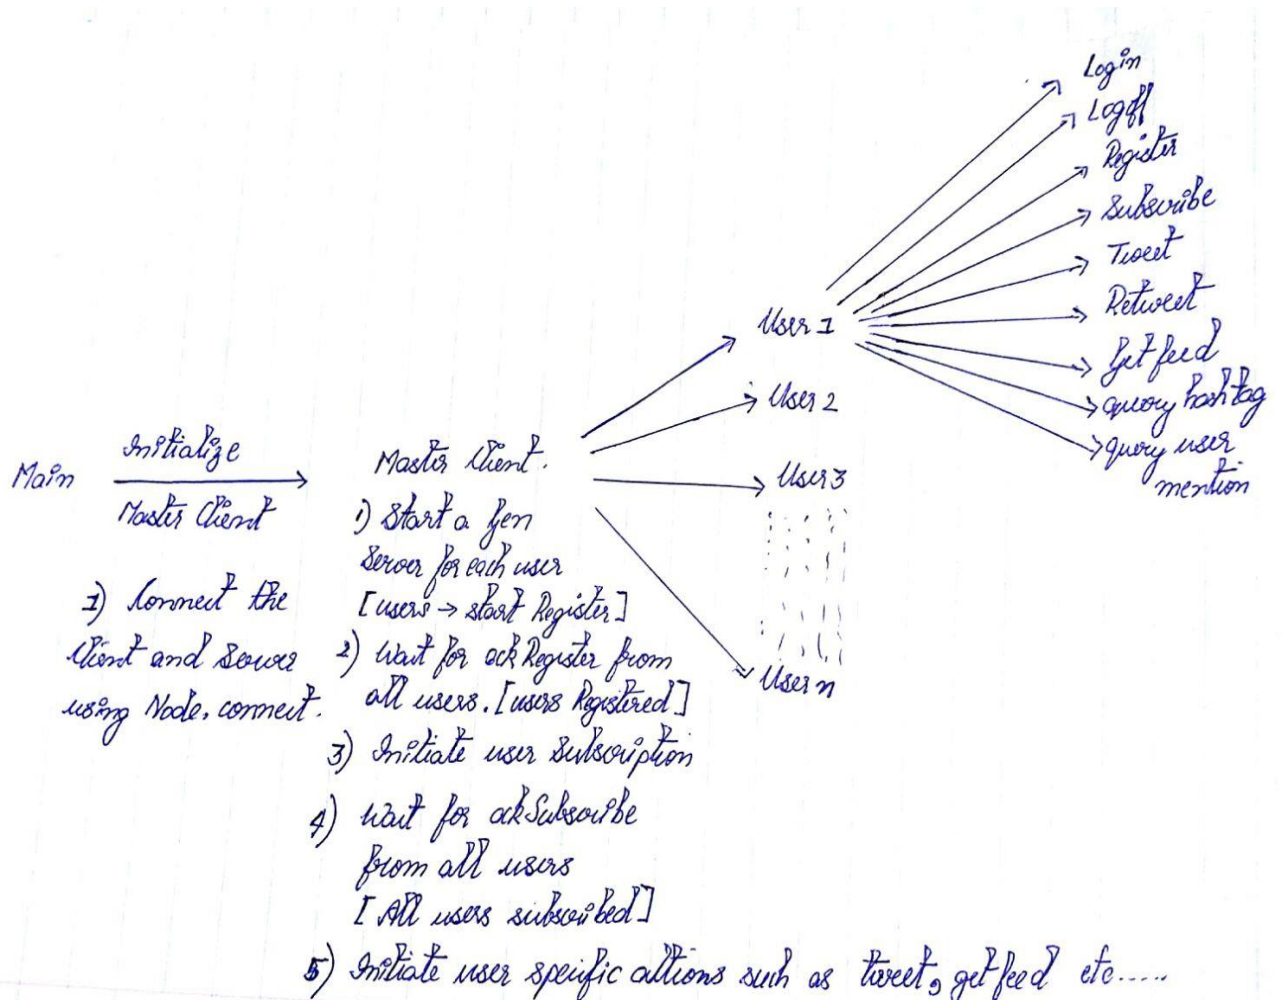 Main
Initialize
Master Client
1) Connect the
Client and Server
using Node.connect.
Master Client.
1) Start a Gen
Server for each user
[users → start Register]
2) Wait for ackRegister from
all users. [users Registered]
3) Initiate user Subscription
4) Wait for ackSubscribe
from all users
[All users subscribed]
5) Initiate user specific actions such as tweet, getfeed etc.....
User 1
User 2
User 3
User n
Login
Logoff
Register
Subscribe
Tweet
Retweet
Get feed
query hashtag
query user
mention